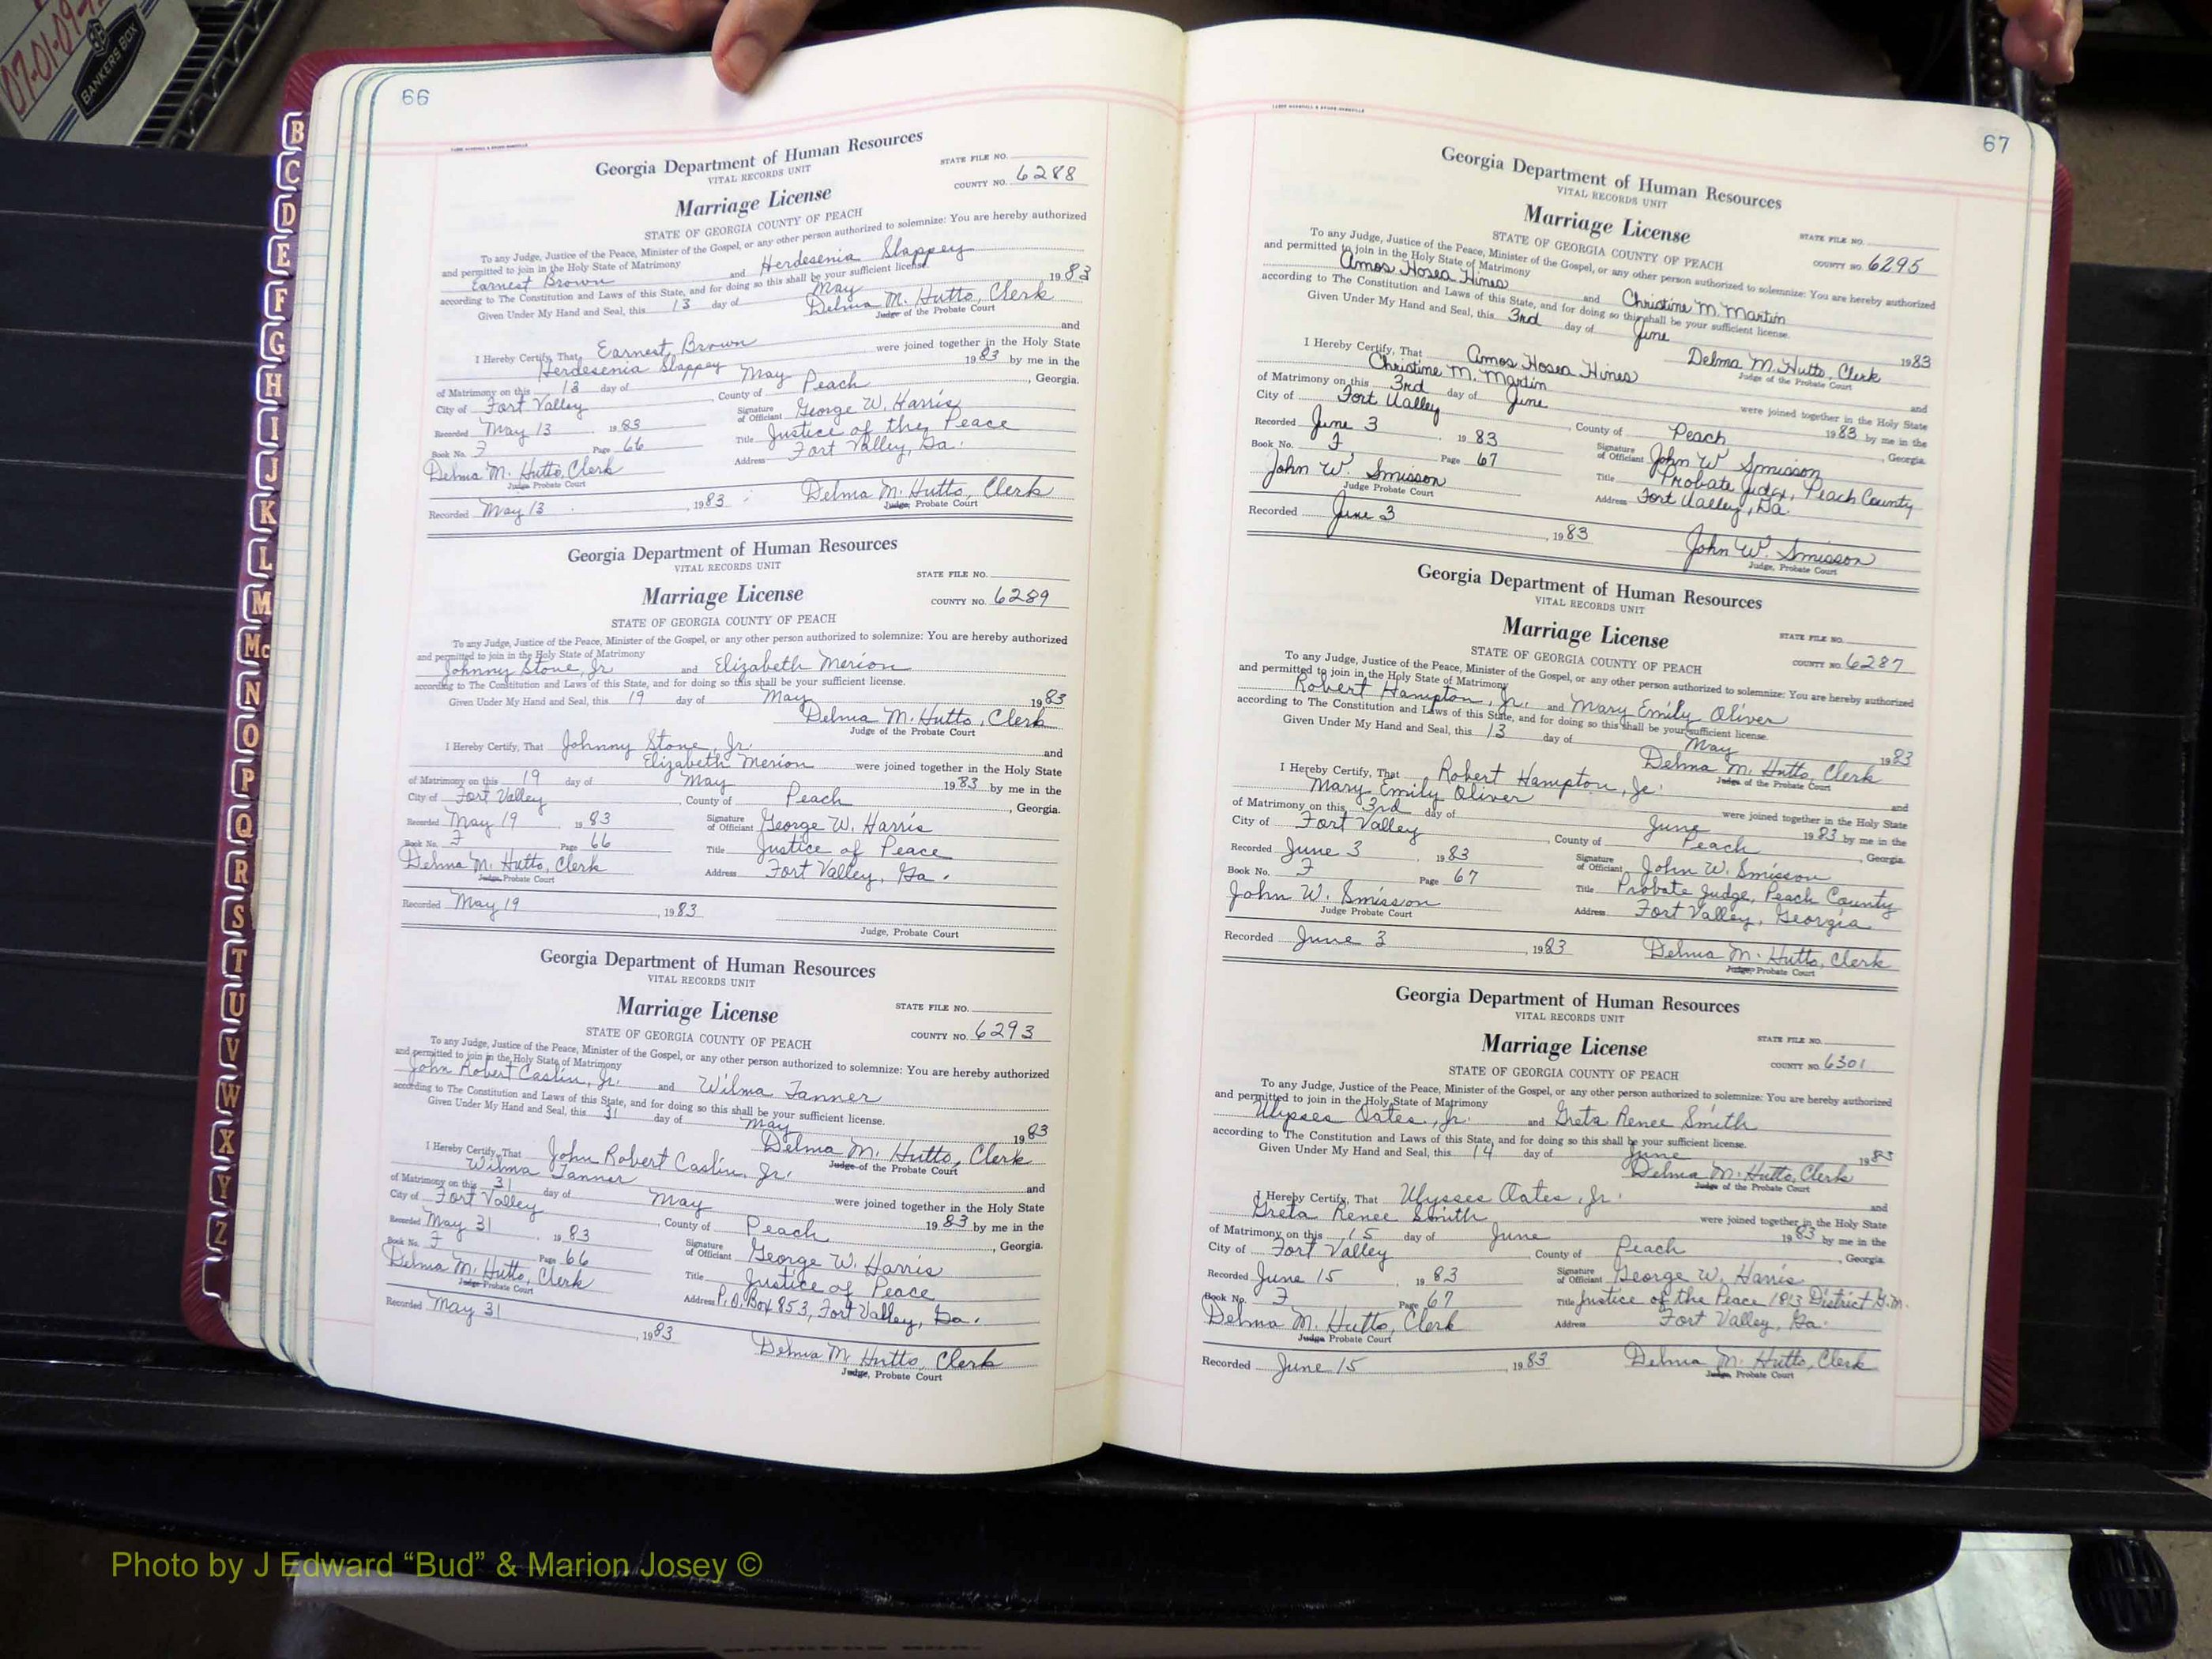 07-01-09-
BANKERS BOX
B
C
D
E
F
G
H
I
J
K
L
M
Mc
N
O
P
Q
R
S
T
U
V
W
X
Y
Z
66
Georgia Department of Human Resources
VITAL RECORDS UNIT
STATE FILE NO.
Marriage License
COUNTY NO. 6288
STATE OF GEORGIA COUNTY OF PEACH
To any Judge, Justice of the Peace, Minister of the Gospel, or any other person authorized to solemnize: You are hereby authorized
and permitted to join in the Holy State of Matrimony
Earnest Brown and Herdesenia Slappey
according to The Constitution and Laws of this State, and for doing so this shall be your sufficient license.
Given Under My Hand and Seal, this 13 day of May 1983
Delma M. Hutto, Clerk
Judge of the Probate Court
I Hereby Certify, That Earnest Brown and
Herdesenia Slappey were joined together in the Holy State
of Matrimony on this 13 day of May 1983 by me in the
City of Fort Valley, County of Peach, Georgia.
Recorded May 13 1983 Signature of Officiant George W. Harris
Book No. F Page 66 Title Justice of the Peace
Delma M. Hutto, Clerk Address Fort Valley, Ga.
Judge Probate Court
Recorded May 13, 1983 Delma M. Hutto, Clerk
Judge, Probate Court
Georgia Department of Human Resources
VITAL RECORDS UNIT
STATE FILE NO.
Marriage License
COUNTY NO. 6289
STATE OF GEORGIA COUNTY OF PEACH
To any Judge, Justice of the Peace, Minister of the Gospel, or any other person authorized to solemnize: You are hereby authorized
and permitted to join in the Holy State of Matrimony
Johnny Stone, Jr. and Elizabeth Merion
according to The Constitution and Laws of this State, and for doing so this shall be your sufficient license.
Given Under My Hand and Seal, this 19 day of May 1983
Delma M. Hutto, Clerk
Judge of the Probate Court
I Hereby Certify, That Johnny Stone, Jr. and
Elizabeth Merion were joined together in the Holy State
of Matrimony on this 19 day of May 1983 by me in the
City of Fort Valley, County of Peach, Georgia.
Recorded May 19 1983 Signature of Officiant George W. Harris
Book No. F Page 66 Title Justice of Peace
Delma M. Hutto, Clerk Address Fort Valley, Ga.
Judge, Probate Court
Recorded May 19, 1983
Judge, Probate Court
Georgia Department of Human Resources
VITAL RECORDS UNIT
STATE FILE NO.
Marriage License
COUNTY NO. 6293
STATE OF GEORGIA COUNTY OF PEACH
To any Judge, Justice of the Peace, Minister of the Gospel, or any other person authorized to solemnize: You are hereby authorized
and permitted to join in the Holy State of Matrimony
John Robert Caslin, Jr. and Wilma Tanner
according to The Constitution and Laws of this State, and for doing so this shall be your sufficient license.
Given Under My Hand and Seal, this 31 day of May 1983
Delma M. Hutto, Clerk
Judge of the Probate Court
I Hereby Certify, That John Robert Caslin, Jr. and
Wilma Tanner were joined together in the Holy State
of Matrimony on this 31 day of May 1983 by me in the
City of Fort Valley, County of Peach, Georgia.
Recorded May 31 1983 Signature of Officiant George W. Harris
Book No. F Page 66 Title Justice of Peace
Delma M. Hutto, Clerk Address P.O. Box 853, Fort Valley, Ga.
Judge Probate Court
Recorded May 31, 1983 Delma M Hutto, Clerk
Judge, Probate Court
67
Georgia Department of Human Resources
VITAL RECORDS UNIT
Marriage License
STATE FILE NO.
STATE OF GEORGIA COUNTY OF PEACH
COUNTY NO. 6295
To any Judge, Justice of the Peace, Minister of the Gospel, or any other person authorized to solemnize: You are hereby authorized
and permitted to join in the Holy State of Matrimony
Amos Hosea Hines and Christine M. Martin
according to The Constitution and Laws of this State, and for doing so this shall be your sufficient license.
Given Under My Hand and Seal, this 3rd day of June 1983
Delma M. Hutto, Clerk
Judge of the Probate Court
I Hereby Certify, That Amos Hosea Hines and
Christine M. Martin were joined together in the Holy State
of Matrimony on this 3rd day of June 1983 by me in the
City of Fort Valley, County of Peach, Georgia.
Recorded June 3 1983 Signature of Officiant John W Smisson
Book No. F Page 67 Title Probate Judge, Peach County
John W. Smisson Address Fort Valley, Ga.
Judge Probate Court
Recorded June 3, 1983 John W. Smisson
Judge, Probate Court
Georgia Department of Human Resources
VITAL RECORDS UNIT
Marriage License
STATE FILE NO.
STATE OF GEORGIA COUNTY OF PEACH
COUNTY NO. 6287
To any Judge, Justice of the Peace, Minister of the Gospel, or any other person authorized to solemnize: You are hereby authorized
and permitted to join in the Holy State of Matrimony
Robert Hampton, Jr. and Mary Emily Oliver
according to The Constitution and Laws of this State, and for doing so this shall be your sufficient license.
Given Under My Hand and Seal, this 13 day of May 1983
Delma M. Hutto, Clerk
Judge of the Probate Court
I Hereby Certify, That Robert Hampton, Jr. and
Mary Emily Oliver were joined together in the Holy State
of Matrimony on this 3rd day of June 1983 by me in the
City of Fort Valley, County of Peach, Georgia.
Recorded June 3 1983 Signature of Officiant John W. Smisson
Book No. F Page 67 Title Probate Judge, Peach County
John W. Smisson Address Fort Valley, Georgia
Judge Probate Court
Recorded June 3, 1983 Delma M. Hutto, Clerk
Judge, Probate Court
Georgia Department of Human Resources
VITAL RECORDS UNIT
STATE FILE NO.
Marriage License
COUNTY NO. 6301
STATE OF GEORGIA COUNTY OF PEACH
To any Judge, Justice of the Peace, Minister of the Gospel, or any other person authorized to solemnize: You are hereby authorized
and permitted to join in the Holy State of Matrimony
Ulysses Oates, Jr. and Greta Renee Smith
according to The Constitution and Laws of this State, and for doing so this shall be your sufficient license.
Given Under My Hand and Seal, this 14 day of June 1983
Delma M. Hutto, Clerk
Judge of the Probate Court
I Hereby Certify, That Ulysses Oates, Jr. and
Greta Renee Smith were joined together in the Holy State
of Matrimony on this 15 day of June 1983 by me in the
City of Fort Valley, County of Peach, Georgia.
Recorded June 15 1983 Signature of Officiant George W. Harris
Book No. F Page 67 Title Justice of the Peace 1813 District G.M.
Delma M. Hutto, Clerk Address Fort Valley, Ga.
Judge Probate Court
Recorded June 15, 1983 Delma M. Hutto, Clerk
Judge, Probate Court
Photo by J Edward “Bud” & Marion Josey ©